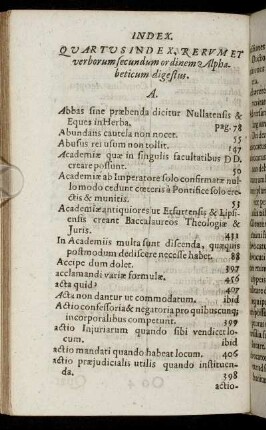 INDEX.
QUARTUS INDEX, RERUM ET
verborum secundum ordinem Alpha-
beticum digestus.
A.
Abbas sine præbenda dicitur Nullatensis &
Eques in Herba. pag. 78
Abundans cautela non nocet. 55
Abusus rei usum non tollit. 147
Academiæ quæ in singulis facultatibus DD.
creare possunt. 50
Academiæ ab Imperatore solo confirmatæ nul-
lo modo cedunt cœteris à Pontifice solo ere-
ctis & munitis. 53
Academiæ antiquiores ut Erfurtensis & Lipsi-
ensis creant Baccalaureos Theologiæ &
Juris. 433
In Academiis multa sunt discenda, quæquis
postmodum dediscere necesse habet. 88
Accipe dum dolet. 397
acclamandi variæ formulæ. 456
acta quid? 407
Acta non dantur ut commodatum. ibid
Actio confessoria & negatoria pro quibuscunq;
incorporalibus competunt. 399
actio Injuriarum quando sibi vendicet lo-
cum. ibid
actio mandati quando habeat locum. 406
actio præjudicialis utilis quando instituen-
da. 398
actio-